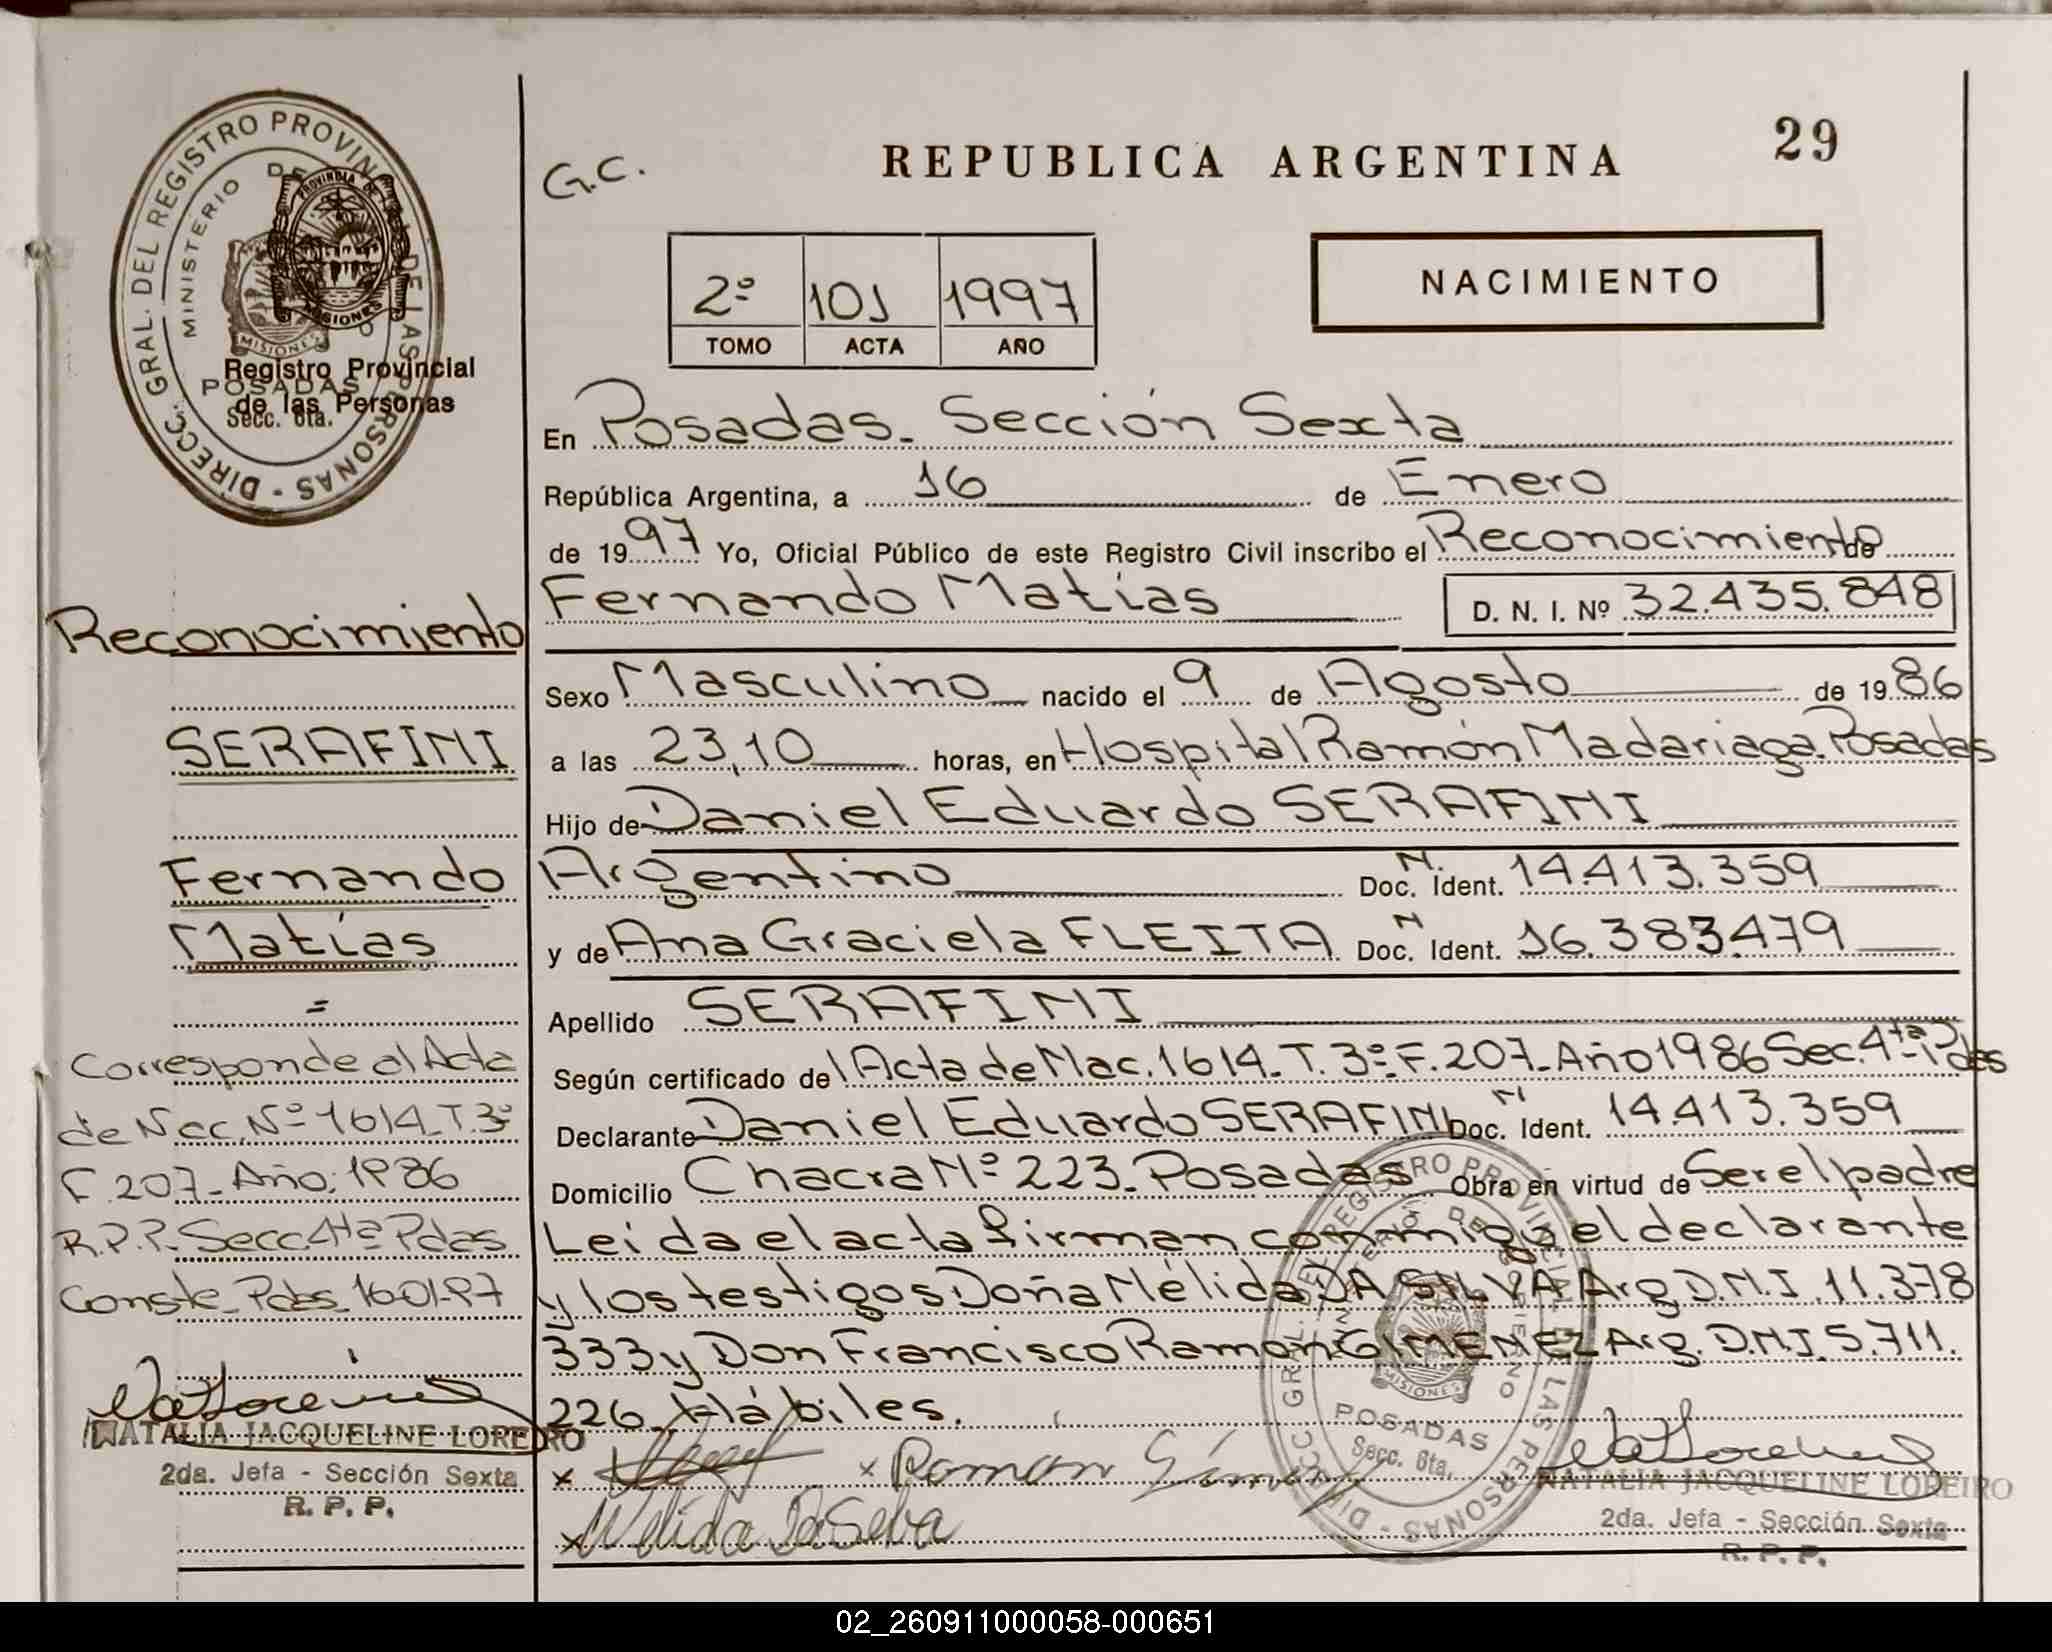 DIRECC. GRAL. DEL REGISTRO PROVINCIAL DE LAS PERSONAS
MINISTERIO DE
PROVINCIA DE MISIONES
MISIONES
POSADAS
Secc. 6ta.
Registro Provincial
de las Personas
Reconocimiento
SERAFINI
Fernando
Matías
=
Corresponde al Acta
de Nac. Nº 1614_T.3º
F.207_Año:1986
R.P.P._Secc.4ta Pdas
Conste_Pdas_16-01-97
NATALIA JACQUELINE LOREIRO
2da. Jefa - Sección Sexta
R. P. P.
G.C.
REPUBLICA ARGENTINA
29
2º 101 1997
TOMO ACTA AÑO
NACIMIENTO
En Posadas_ Sección Sexta
República Argentina, a 16 de Enero
de 1997 Yo, Oficial Público de este Registro Civil inscribo el Reconocimiento de
Fernando Matías D. N. I. Nº 32.435.848
Sexo Masculino nacido el 9 de Agosto de 1986
a las 23,10 horas, en Hospital Ramón Madariaga. Posadas
Hijo de Daniel Eduardo SERAFINI
Argentino N. Doc. Ident. 14.413.359
y de Ana Graciela FLEITA N Doc. Ident. 16.383.479
Apellido SERAFINI
Según certificado del Acta de Nac. 1614_T.3º_F.207_Año 1986 Sec. 4ta_Pdas
Declarante Daniel Eduardo SERAFINI N Doc. Ident. 14.413.359
Domicilio Chacra Nº 223_Posadas Obra en virtud de Ser el padre
Leida el acta firman conmigo el declarante
y los testigos Doña Nélida DA SILVA Arg D.N.I. 11.378
333 y Don Francisco Ramón GIMENEZ Arg. D.N.I. 5.711.
226_Hábiles.
x x Roman Gimenez
x Nelida Da Selva
DIRECC. GRAL. DEL REGISTRO PROVINCIAL DE LAS PERSONAS
MINISTERIO DE GOBIERNO
MISIONES
POSADAS
Secc. 6ta.
NATALIA JACQUELINE LOREIRO
2da. Jefa - Sección Sexta
R. P. P.
02_260911000058-000651